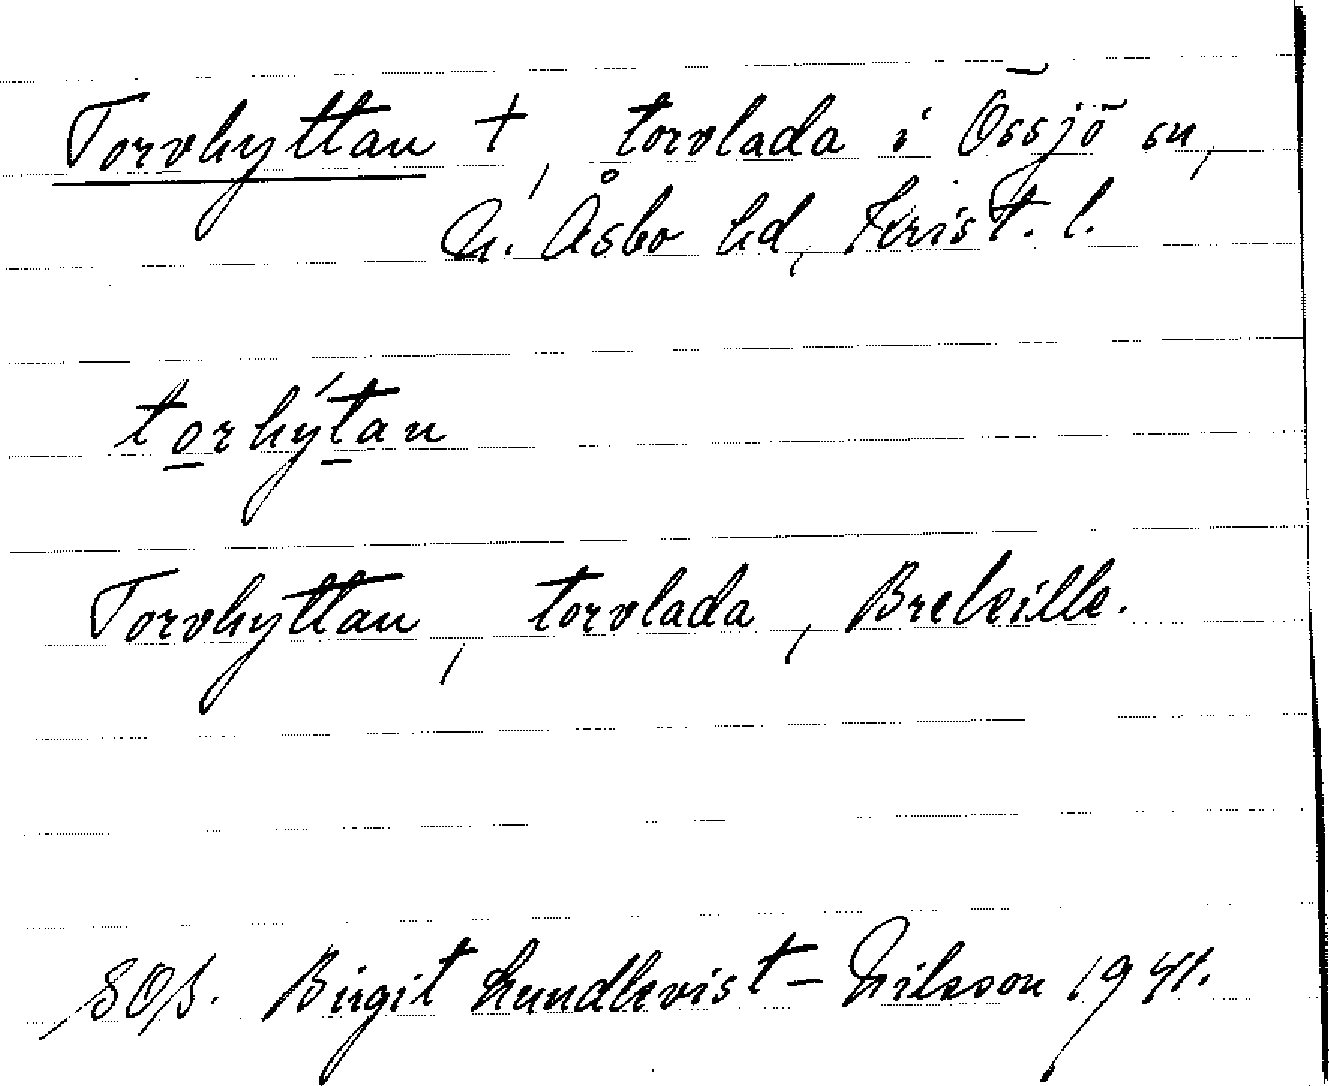 Torvhyttan †, torvlada i Össjö sn,
N. Åsbo hd, Krist. l.
torhýtan
Torvhyttan, torvlada,
SOS. Birgit Lundkvist-Nilsson 1941.